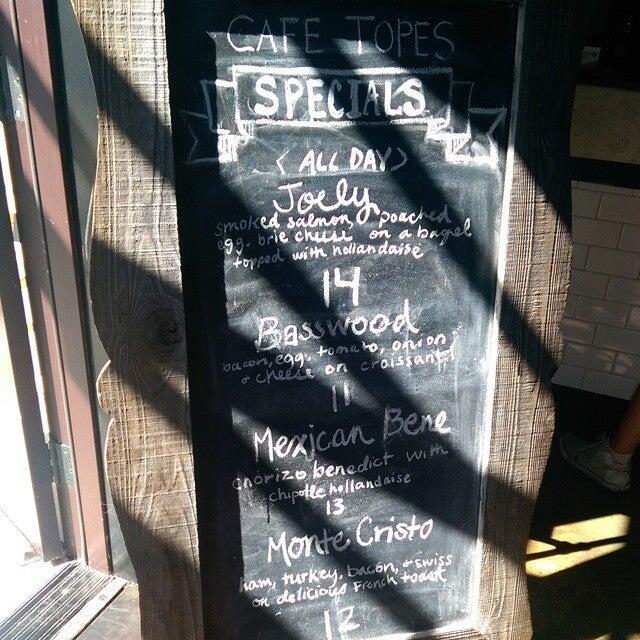 CAFE TOPES
SPECIALS
< ALL DAY >
Joely
smoked salmon, poached
egg, brie cheese on a bagel
topped with hollandaise
14
Basswood
bacon, egg, tomato, onion
& cheese on croissant
11
Mexican Bene
chorizo benedict with
chipotle hollandaise
13
Monte Cristo
ham, turkey, bacon, & swiss
on delicious French toast
12